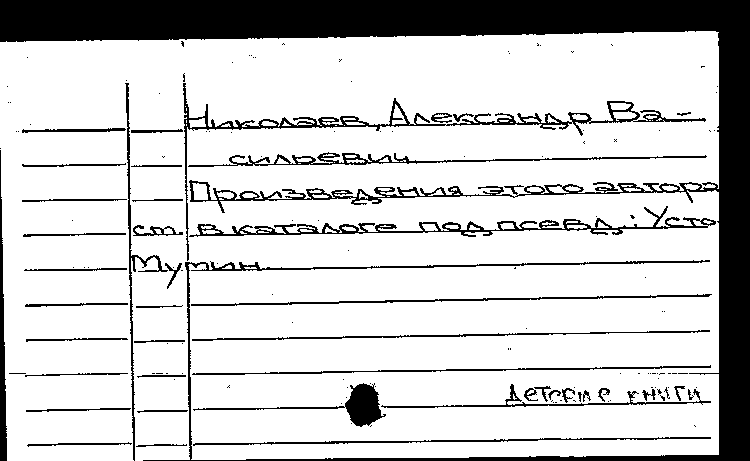 Николаев, Александр Ва-
сильевич
Произведения этого автора
ст. в каталоге под псевд.: Усто
Мумин.
Детские книги